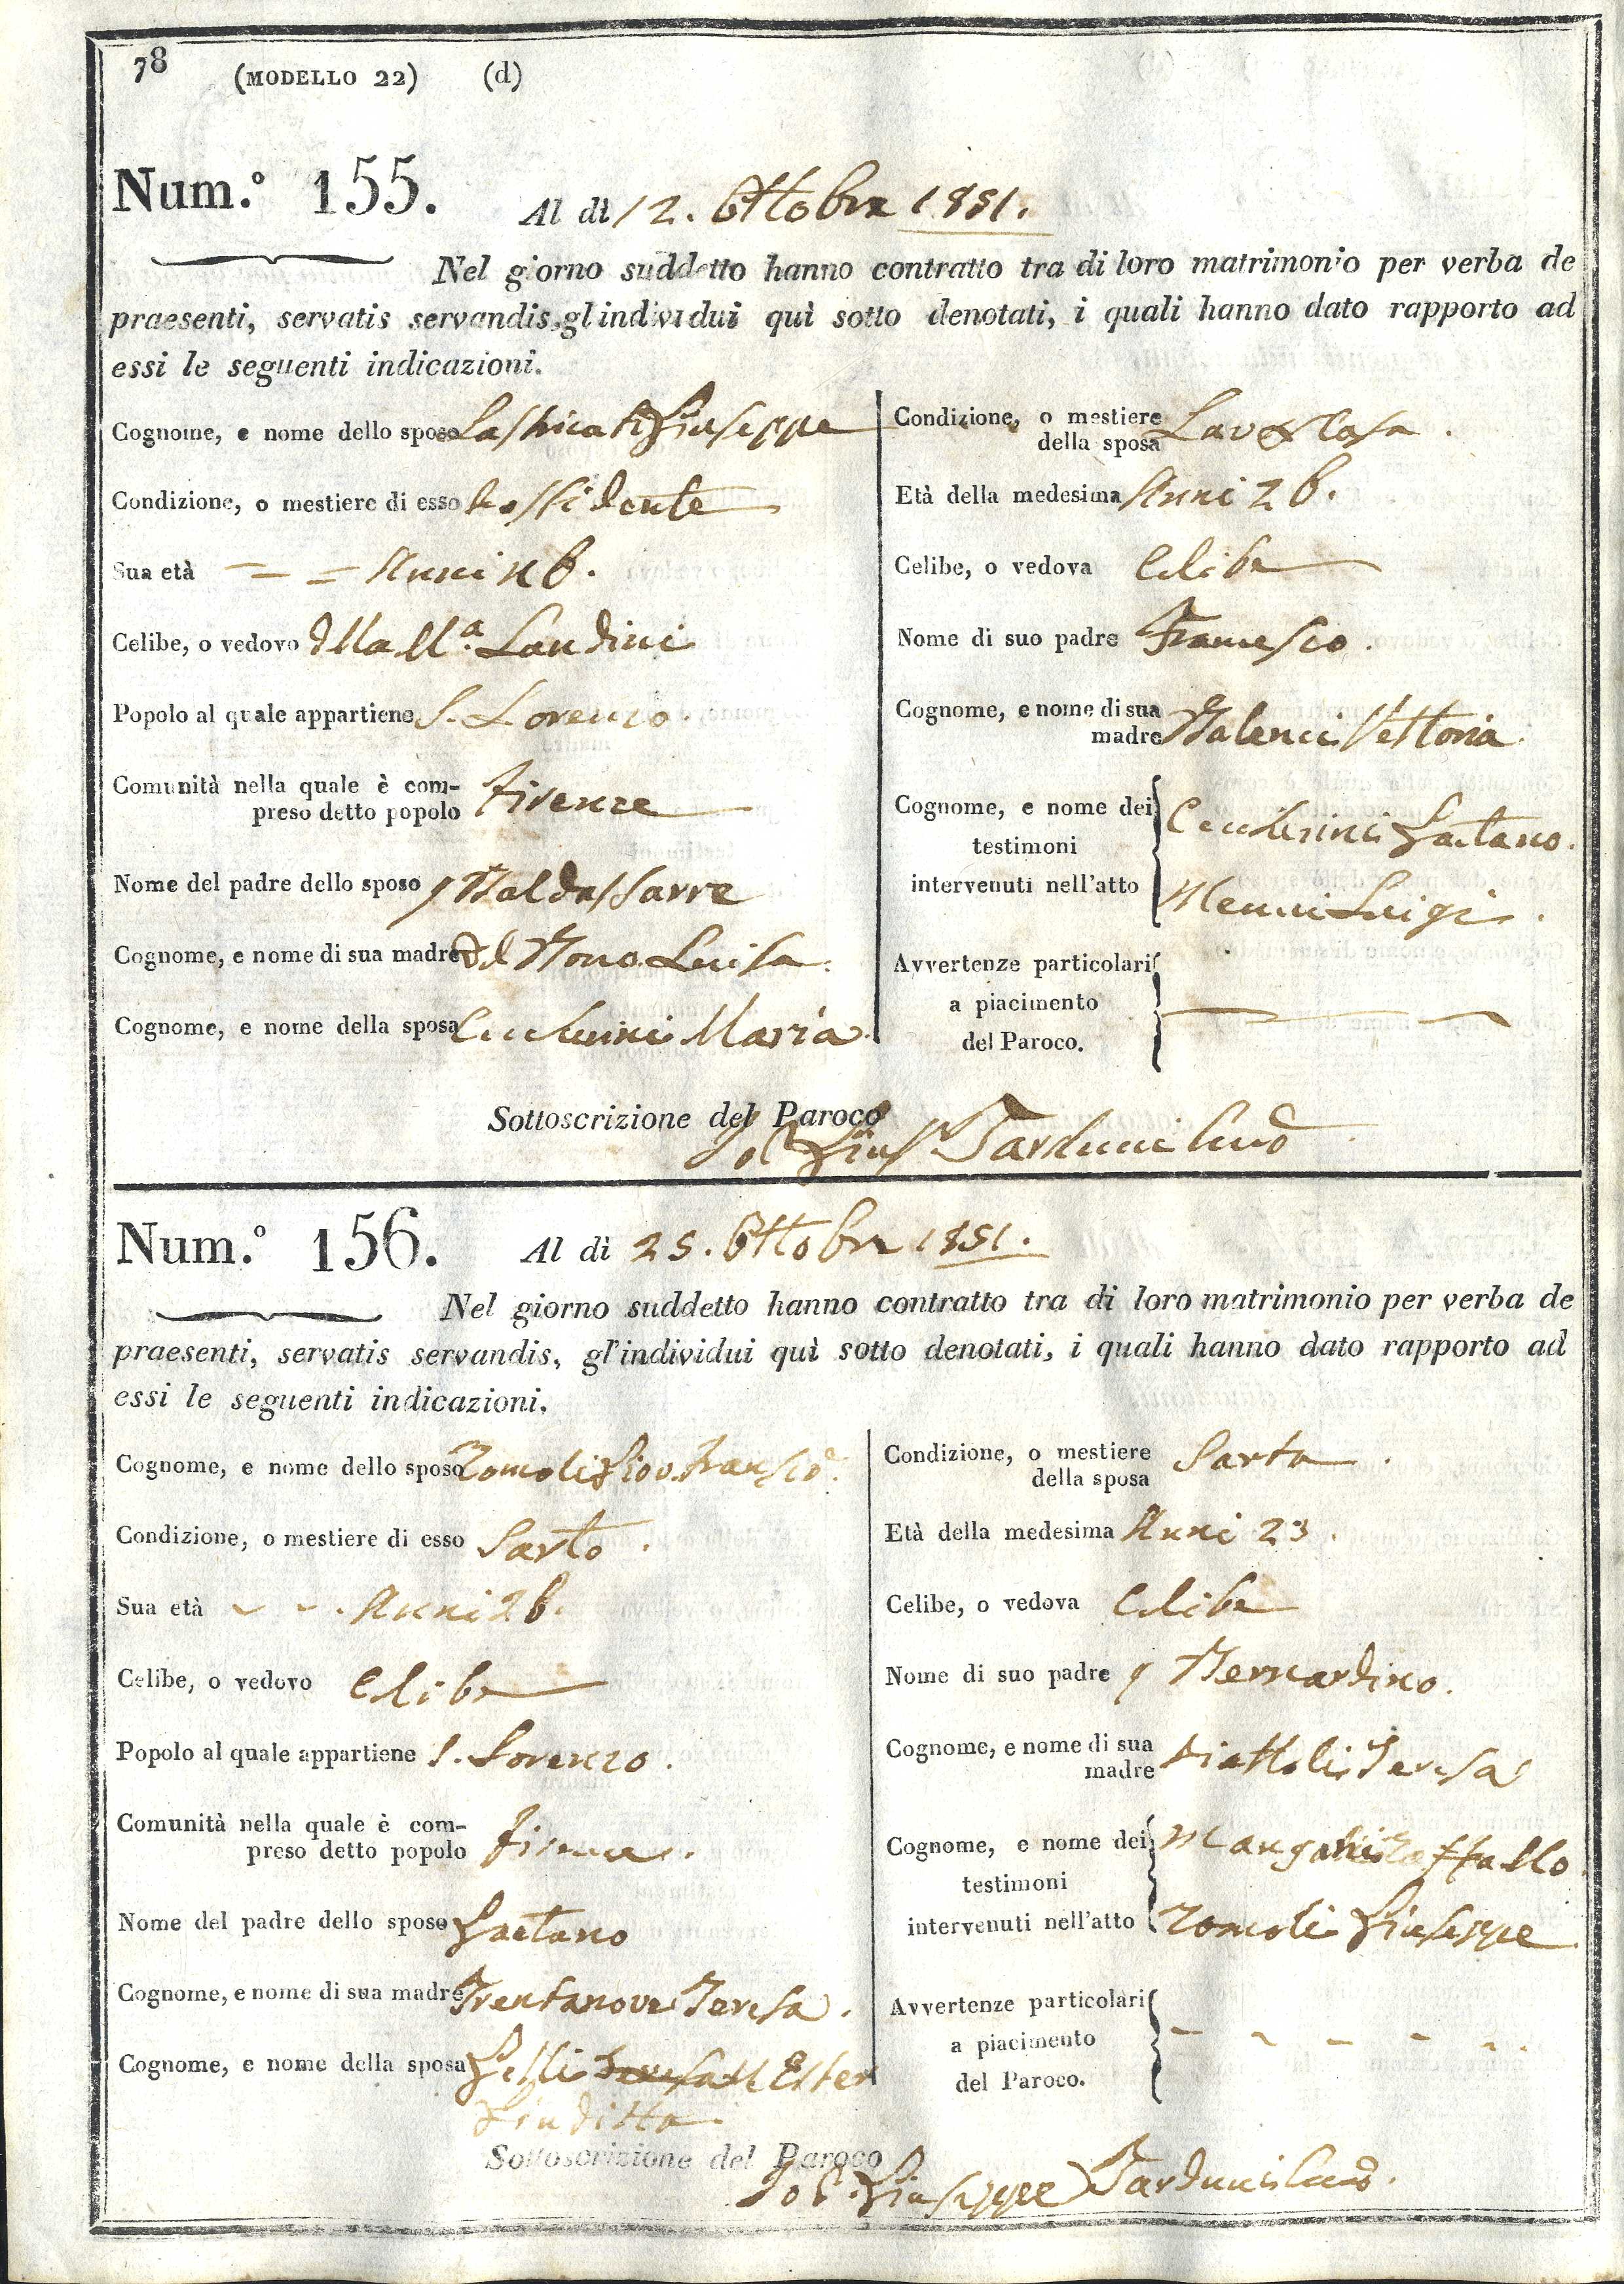 78 (MODELLO 22) (d)
Num.º 155. Al dì 12. Ottobre 1851.
Nel giorno suddetto hanno contratto tra di loro matrimonio per verba de
praesenti, servatis servandis, gl'individui quì sotto denotati, i quali hanno dato rapporto ad
essi le seguenti indicazioni.
Cognome, e nome dello sposo Lastricati Giuseppe
Condizione, o mestiere di esso Possidente
Sua età = = Anni
Celibe, o vedovo della M.ª Landini
Popolo al quale appartiene S. Lorenzo.
Comunità nella quale è com-
preso detto popolo Firenze
Nome del padre dello sposo q Baldassarre
Cognome, e nome di sua madre del Bono Luisa.
Cognome, e nome della sposa Maria
Condizione, o mestiere
della sposa Att.e a Casa.
Età della medesima Anni 26.
Celibe, o vedova Celibe
Nome di suo padre Francesco.
Cognome, e nome di sua
madre Balenci Vettoria.
Cognome, e nome dei
testimoni
intervenuti nell'atto
Gaetano.
Menni Luigi.
Avvertenze particolari
a piacimento
del Paroco.
Sottoscrizione del Paroco
Giusͤ Tarduci Curͦ
Num.º 156. Al dì 25. Ottobre 1851.
Nel giorno suddetto hanno contratto tra di loro matrimonio per verba de
praesenti, servatis servandis, gl'individui quì sotto denotati, i quali hanno dato rapporto ad
essi le seguenti indicazioni.
Cognome, e nome dello sposo Romoli Giov. Franscͦ.
Condizione, o mestiere di esso Sarto.
Sua età - - . Anni 26.
Celibe, o vedovo Celibe
Popolo al quale appartiene S. Lorenzo.
Comunità nella quale è com-
preso detto popolo Firenze.
Nome del padre dello sposo Gaetano
Cognome, e nome di sua madre Trentanove Teresa.
Cognome, e nome della sposa Gelli Teresa M Ester
Giuditta.
Condizione, o mestiere
della sposa Sarta.
Età della medesima Anni 23.
Celibe, o vedova Celibe
Nome di suo padre q Bernardino.
Cognome, e nome di sua
madre Piattoli Teresa
Cognome, e nome dei
testimoni
intervenuti nell'atto
Mangani Raffaello
Romoli Giuseppe
Avvertenze particolari
a piacimento
del Paroco.
Sottoscrizione del Paroco
Giuseppe Tarduci Curͦ.